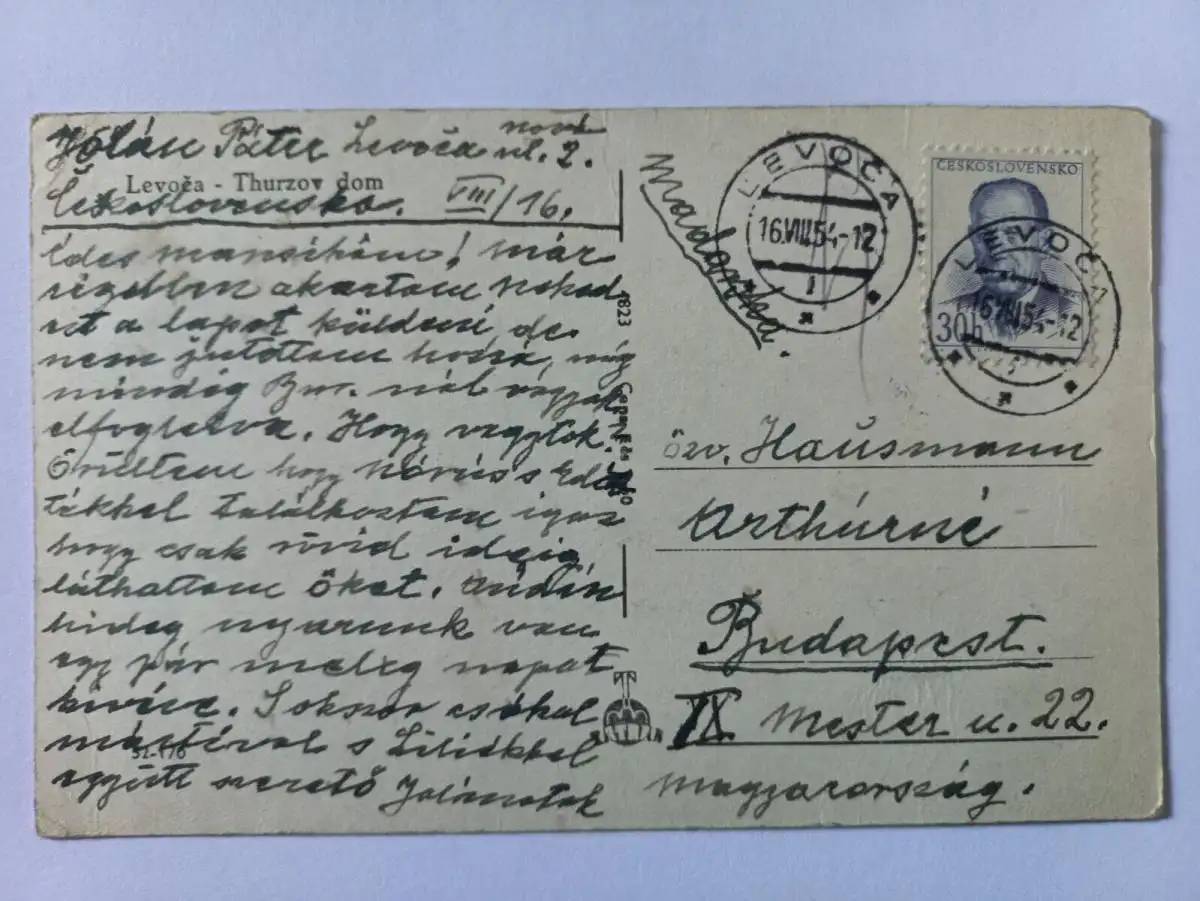 Jólán Páter Levoča nová
ul. 2.
Levoča - Thurzov dom
Československo. VIII/16.
Édes mancikám! már
régebben akartam neked
ezt a lapot küldeni, de
nem jutottam hozzá, még
mindig Bur. nál vagyok
elfoglalva. Hogy vagytok.
Örültem hogy Nórus s Edit
tékkel találkoztam igaz
hogy csak rövid ideig
láthattam őket. nidin
hideg nyarunk van
egy pár meleg napot
kivéve. Sokszor csókol
mártával s Liliékkel
együtt szerető Jolánotok
52-176
1823
Madarská.
LEVOČA
16.VIII.54-12
1
ČESKOSLOVENSKO
30h
LEVOČA
16.VIII.54-12
özv. Hausmann
Arthúrné
Budapest.
IX Mester u. 22.
Magyarország.